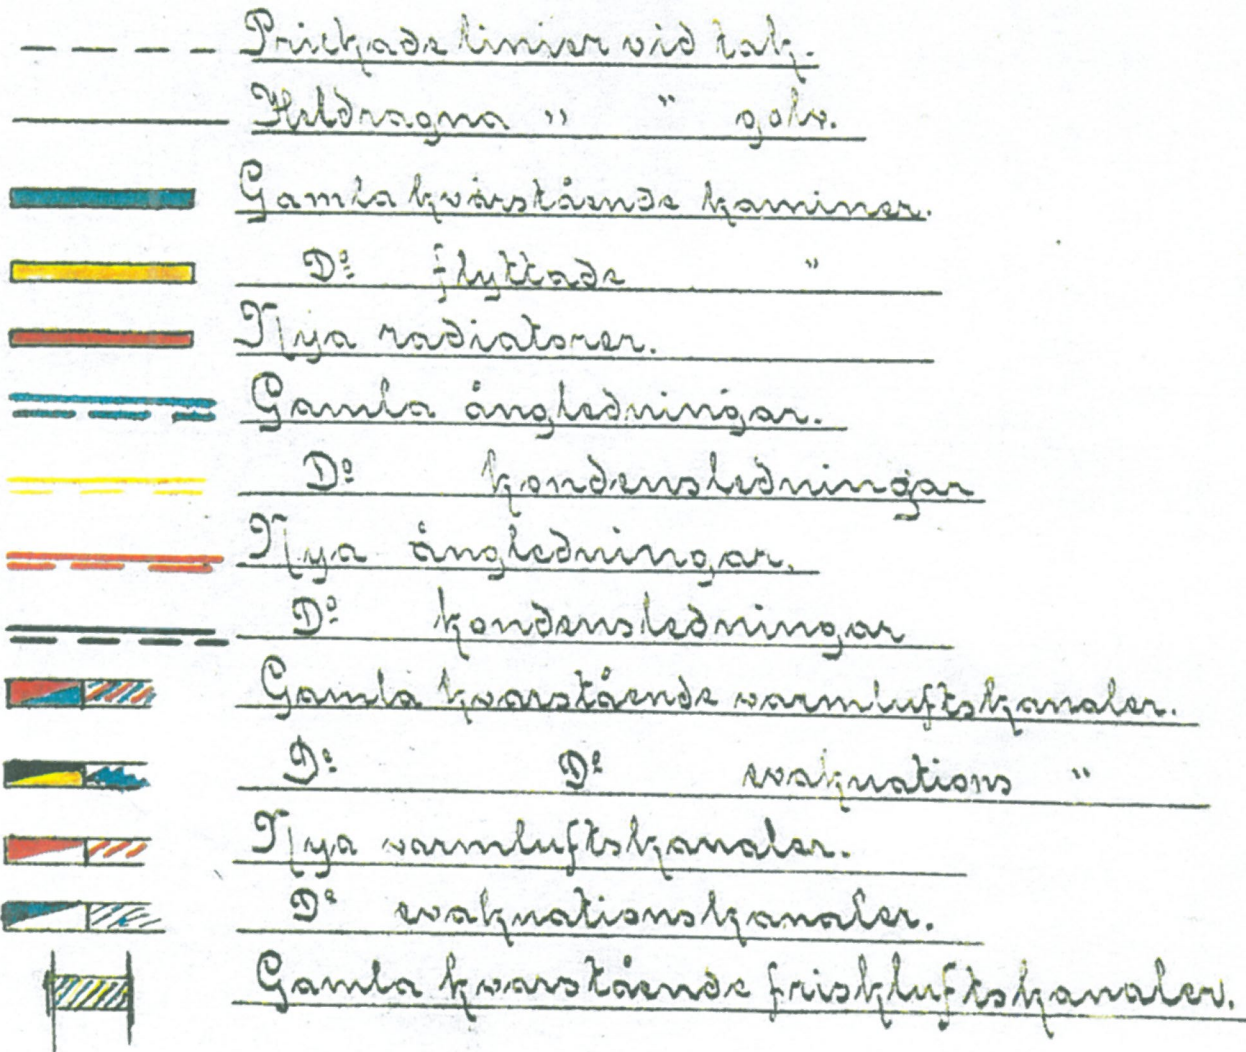 Prickade linier vid tak.
Heldragna " " golv.
Gamla kvarstående kaminer.
Dº flyttade "
Nya radiatorer.
Gamla ångledningar.
Dº kondensledningar
Nya ångledningar.
Dº kondensledningar
Gamla kvarstående varmluftskanaler.
Dº Dº evakuations "
Nya varmluftskanaler.
Dº evakuationskanaler.
Gamla kvarstående friskluftskanaler.